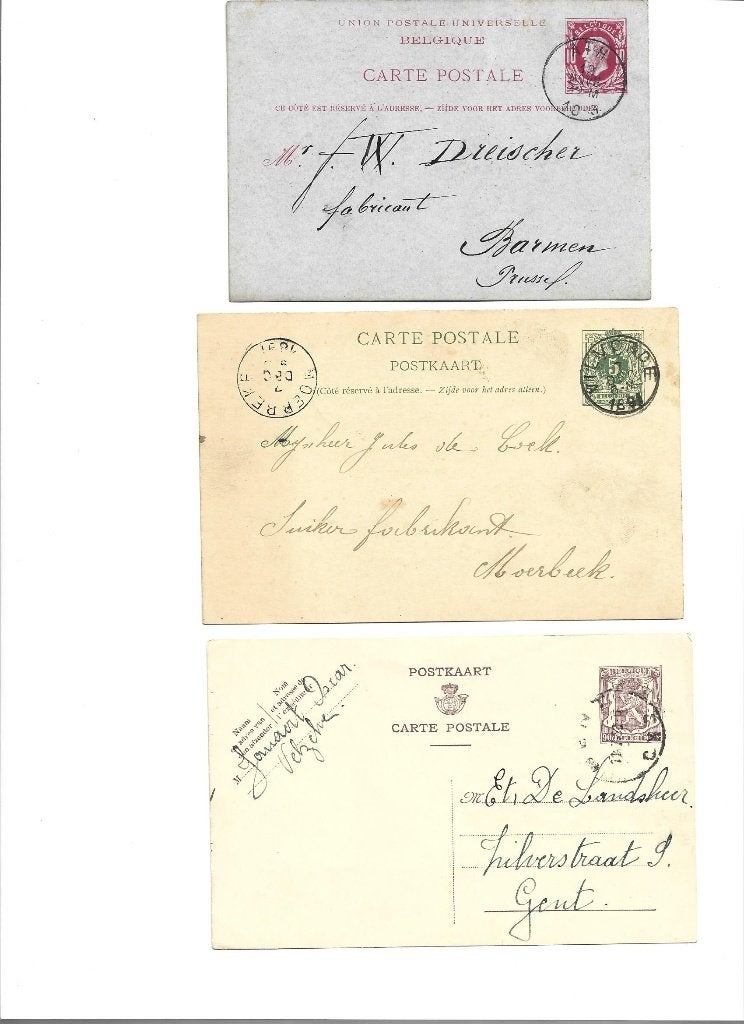 UNION POSTALE UNIVERSELLE
BELGIQUE
CARTE POSTALE
CE CÔTÉ EST RÉSERVÉ À L'ADRESSE. — ZIJDE VOOR HET ADRES VOORBEHOUDEN.
BELGIQUE
10 10
ATH
Mr. f. W. Dreischer
fabricant
Barmen
Prusse.
CARTE POSTALE
POSTKAART
(Côté réservé à l'adresse. — Zijde voor het adres alleen.)
5
1891
MOERBEKE
1891
7
DEC
Mynheer Jules de Cock.
Suiker fabrikant
Moerbeek.
POSTKAART
CARTE POSTALE
BELGIQUE
BELGIE
Naam
adres van
den afzender
Nom
et adresse de
l'expéditeur
M
Oscar
Velzeke
M Et, De Landsheer
Zilverstraat 9.
Gent.